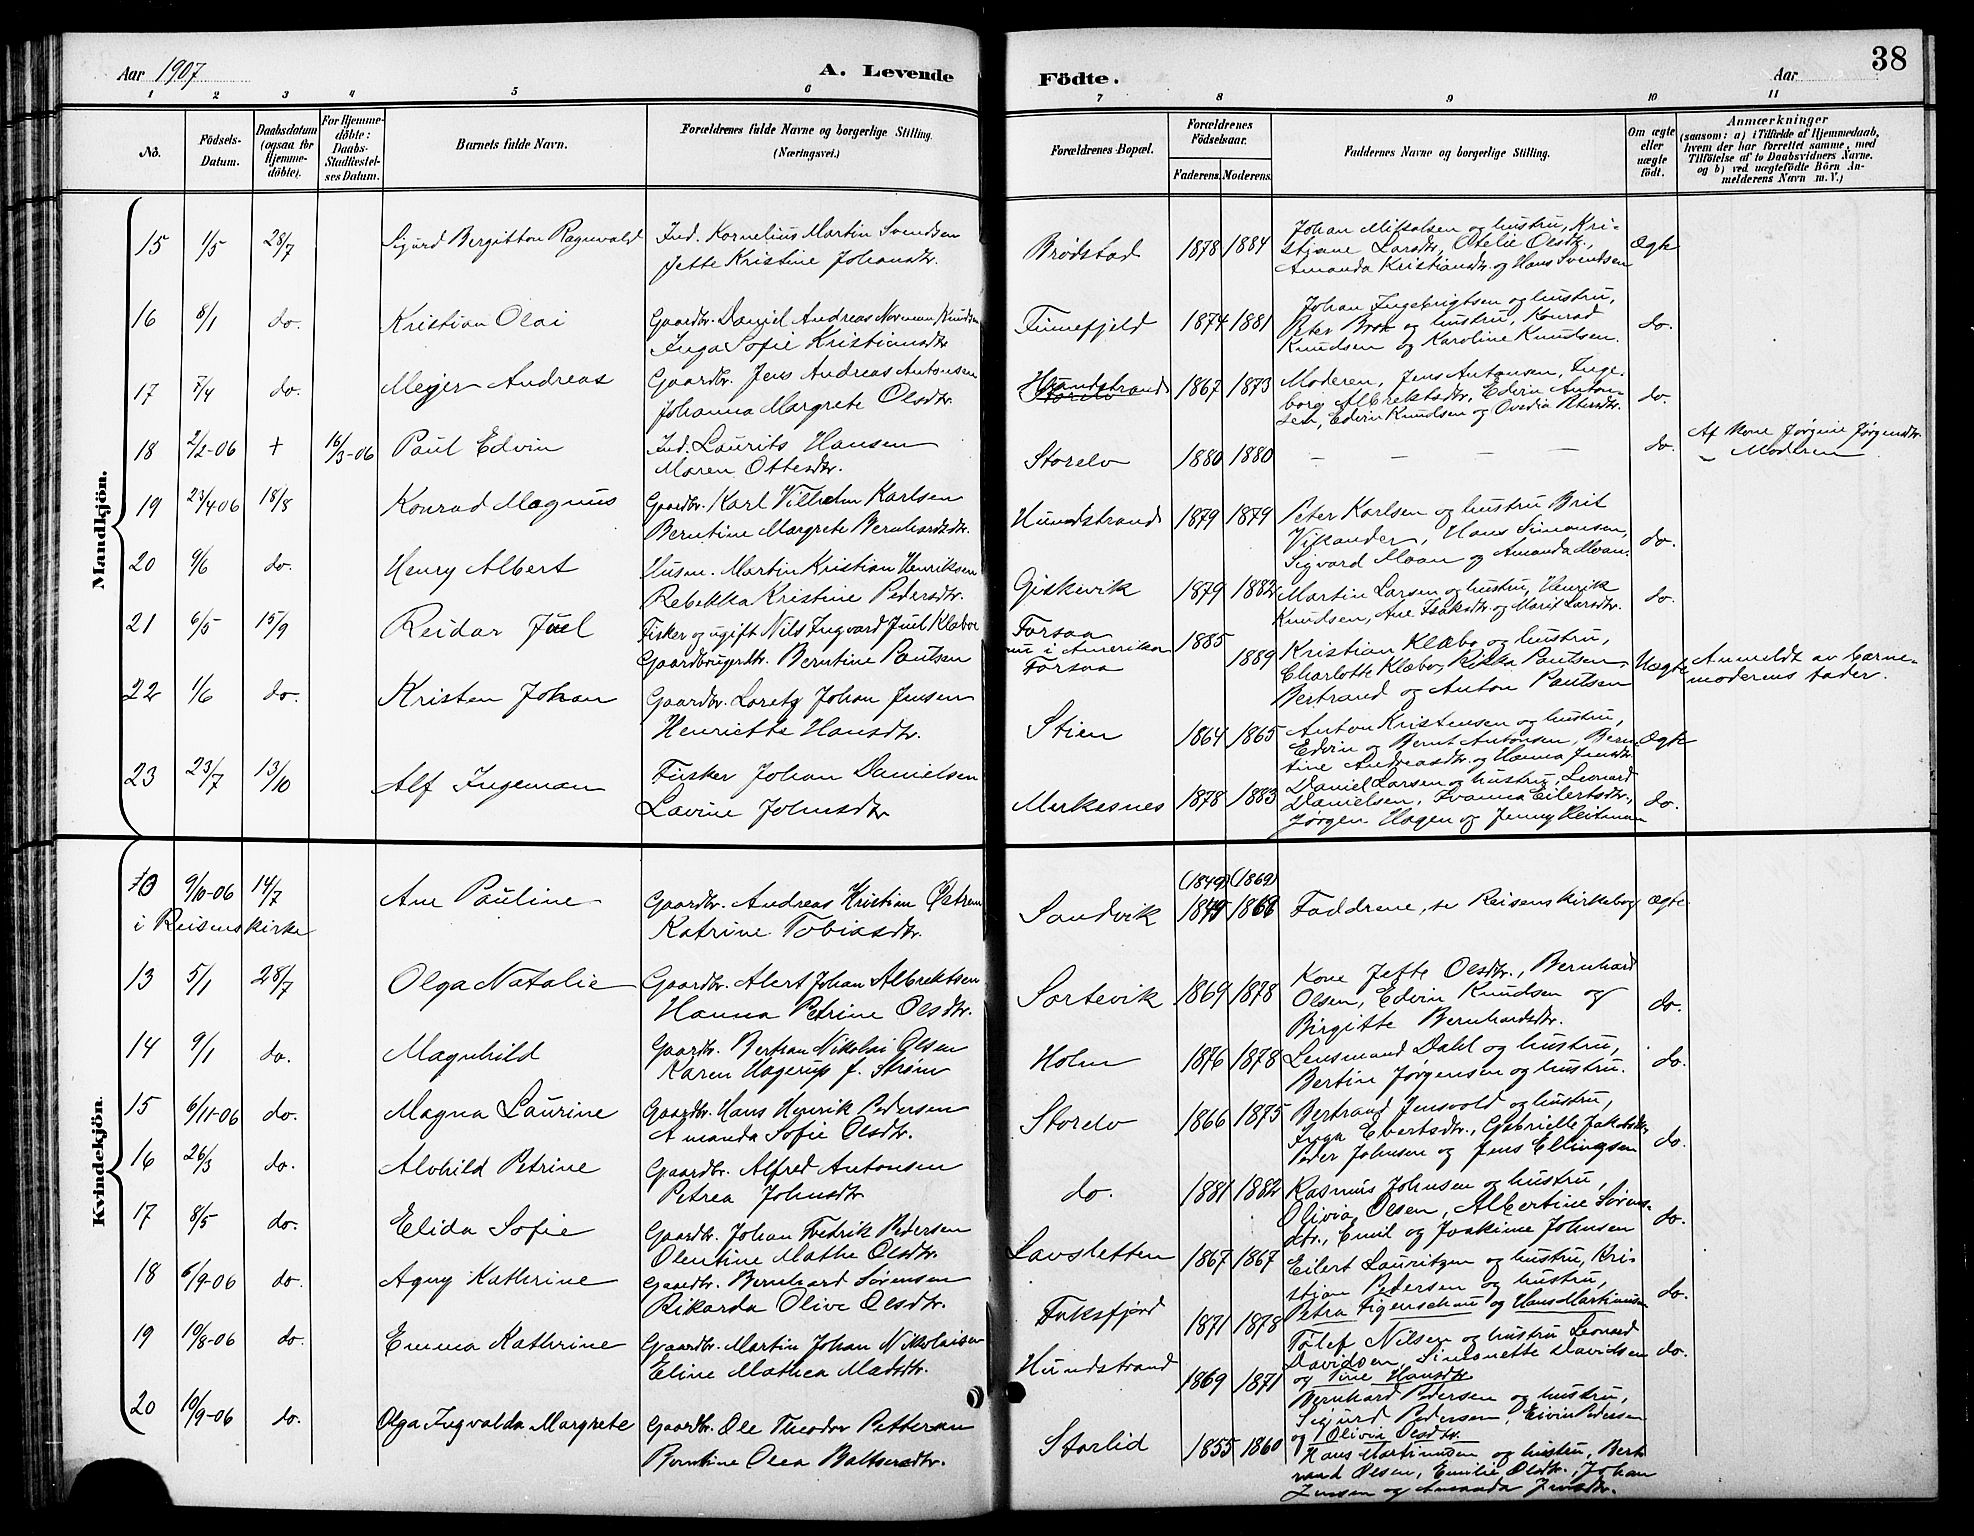 Aar 1907
A. Levende
Födte.
Aar
38
1 2 3 4 5 6 7 8 9 10 11
No.
Födsels-
Datum.
Daabsdatum
(ogsaa for
Hjemme-
döbte).
For Hjemme-
döbte:
Daabs-
Stadfæstel-
ses Datum.
Barnets fulde Navn.
Forældrenes fulde Navne og borgerlige Stilling.
(Næringsvei.)
Forældrenes Bopæl.
Forældrenes
Födselsaar.
Faderens. Moderens.
Faddernes Navne og borgerlige Stilling.
Om ægte
eller
uægte
födt.
Anmærkninger
(saasom: a) i Tilfælde af Hjemmedaab,
hvem der har forrettet samme, med
Tilföielse af to Daabsvidners Navne.
og b) ved uægtefödte Börn An-
melderens Navn m. V.)
Mandkjön.
15 1/5 28/7 Sigurd Bergitton Ragnvald
Ind. Kornelius Martin Svendsen
Jette Kristine Johansdtr.
Brødstad 1878 1884
Johan Mikalsen og hustru, Kri-
stiane Larsdtr, Otelie Olsdtr.,
Amanda Kristiansdtr. og Hans Svendsen
Ægte
16 8/1 do. Kristian Olai
Gaardbr. Daniel Andreas Norman Knudsen
Inga Sofie Kristiansdtr
Finnefjeld 1874 1881
Johan Ingebrigtsen og hustru,
Peter Brox og hustru, Konrad
Knudsen og Karoline Knudsen.
do.
17 7/4 do. Meyer Andreas
Gaardbr. Jens Andreas Antonsen
Johanna Margrete Olsdtr.
Hundstrand
Storelv
1867 1873
Moderen, Jens Antonsen, Inge-
borg Albrektsdtr., Edvin Anton-
sen, Edvin Knudsen og Ovedia Petersdtr.
do.
18 2/2-06 + 16/3-06 Paul Edvin
Ind. Laurits Hansen
Maren Ottesdtr.
Storelv 1880 1880 – – – –
do.
Af Kone Jørgine Jørgensdtr.
" Moderen
19 23/4-06 18/8 Konrad Magnus
Gaardbr. Karl Vilhelm Karlsen
Berntine Margrete Bernhardsdtr.
Hundstrand 1879 1879
Peter Karlsen og hustru Brit
Vikander, Hans Simonsen,
Sigvard Moan og Amanda Moan.
do.
20 9/6 do. Henry Albert
Husm. Martin Kristian Henriksen
Rebekka Kristine Pedersdtr.
Giskevik 1879 1882
Martin Larsen og hustru, Henrik
Knudsen, Ane Isaksdtr. og Marit Larsdtr.
do.
21 6/5 15/9 Reidar Juel
Fisker og ugift Nils Ingvard Juel Klæboe
Gaardbrugerdtr. Berntine Paulsen
Forsaa
nu i Amerika
Forsaa
1885
1889
Kristian Klæbo og hustru,
Charlotte Klæbo, Rikka Paulsen
Bertrand og Anton Paulsen
Uægte
Anmeldt av barne-
moderens fader.
22 1/6 do. Kristen Johan
Gaardbr. Loretz Johan Jensen
Henriette Hansdtr.
Stien 1864 1865
Anton Kristensen og hustru,
Edvin og Bernt Antonsen, Bern-
tine Andreasdtr. og Hanna Jensdtr.
Ægte
23 23/7 13/10 Alf Ingeman
Fisker Johan Danielsen
Lavine Johnsdtr
Merkesnes 1878 1883
Daniel Larsen og hustru, Leonard
Danielsen, Ivanna Eilertsdtr.,
Jørgen Hagen og Jenny Heitman
do.
Kvindekjön.
10 9/10-06 14/7 Ane Pauline
i Reisens kirke
Gaardbr. Andreas Kristian
Katrine Tobiasdtr.
Sandvik (1849) (1869)
Faddrene, se Reisens kirkebog
Ægte
13 5/1 28/7 Olga Natalie
Gaardbr. Alert Johan Albrektsen
Hanna Petrine Olsdtr.
Sortevik 1869 1878
Kone Jette Olsdtr., Bernhard
Olsen, Edvin Knudsen og
Birgitte Bernhardsdtr.
do.
14 9/1 do. Magnhild
Gaardbr. Bertran Nikolai Olsen
Karen Hagerup f. Strøm
Holm 1876 1878
Lensmand Dahl og hustru,
Bertin Jørgensen og hustru.
do.
15 6/11-06 do. Magna Laurine
Gaardbr. Hans Henrik Pedersen
Amanda Sofie Olsdtr.
Storelv 1866 1875
Bertrand Jensvold og hustru,
Inga Ebertsdtr., Gabrielle Jakobsdtr.
Peder Johnsen og Jens Ellingsen
do.
16 26/3 do. Alvhild Petrine
Gaardbr. Alfred Antonsen
Petrea Johnsdtr
do. 1881 1882
Rasmus Johnsen og hustru,
Olivia Olsen, Albertine Sørens-
dtr., Emil og Joakime Johnsen
do.
17 8/5 do. Elida Sofie
Gaardbr. Johan Fredrik Pedersen
Olentine Mathe Olsdtr.
Lavsletten 1867 1867
Eilert Lauritzen og hustru, Kri-
stian Pedersen og hustru,
Petra Figenschau og Hans Martinusen
do.
18 6/9-06 do. Agny Kathrine
Gaardbr. Bernhard Sørensen
Rikarda Olive Olsdtr.
Faksfjord 1871 1878
Tolef Nilsen og hustru Leonard
Davidsen, Simonette Davidsen
og Tine Hansdtr
do.
19 10/8-06 do. Emma Kathrine
Gaardbr. Martin Johan Nikolaisen
Eline Mathea Madsdtr.
Hundstrand 1869 1871
Bernhard Pedersen og hustru,
Sigurd Pedersen, Eivin Pedersen
og Olivia Olsdtr.
20 10/9-06 do. Olga Ingvalda Margrete
Gaardbr. Ole Theodor Pettersen
Berntine Olea Baltsersdtr.
Storlid 1855 1860
Hans Martinusen og hustru, Bert-
rand Olsen, Emilie Olsdtr., Johan
Jensen og Amanda Jensdtr.